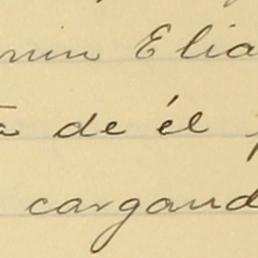 min Elia
de él
cargand